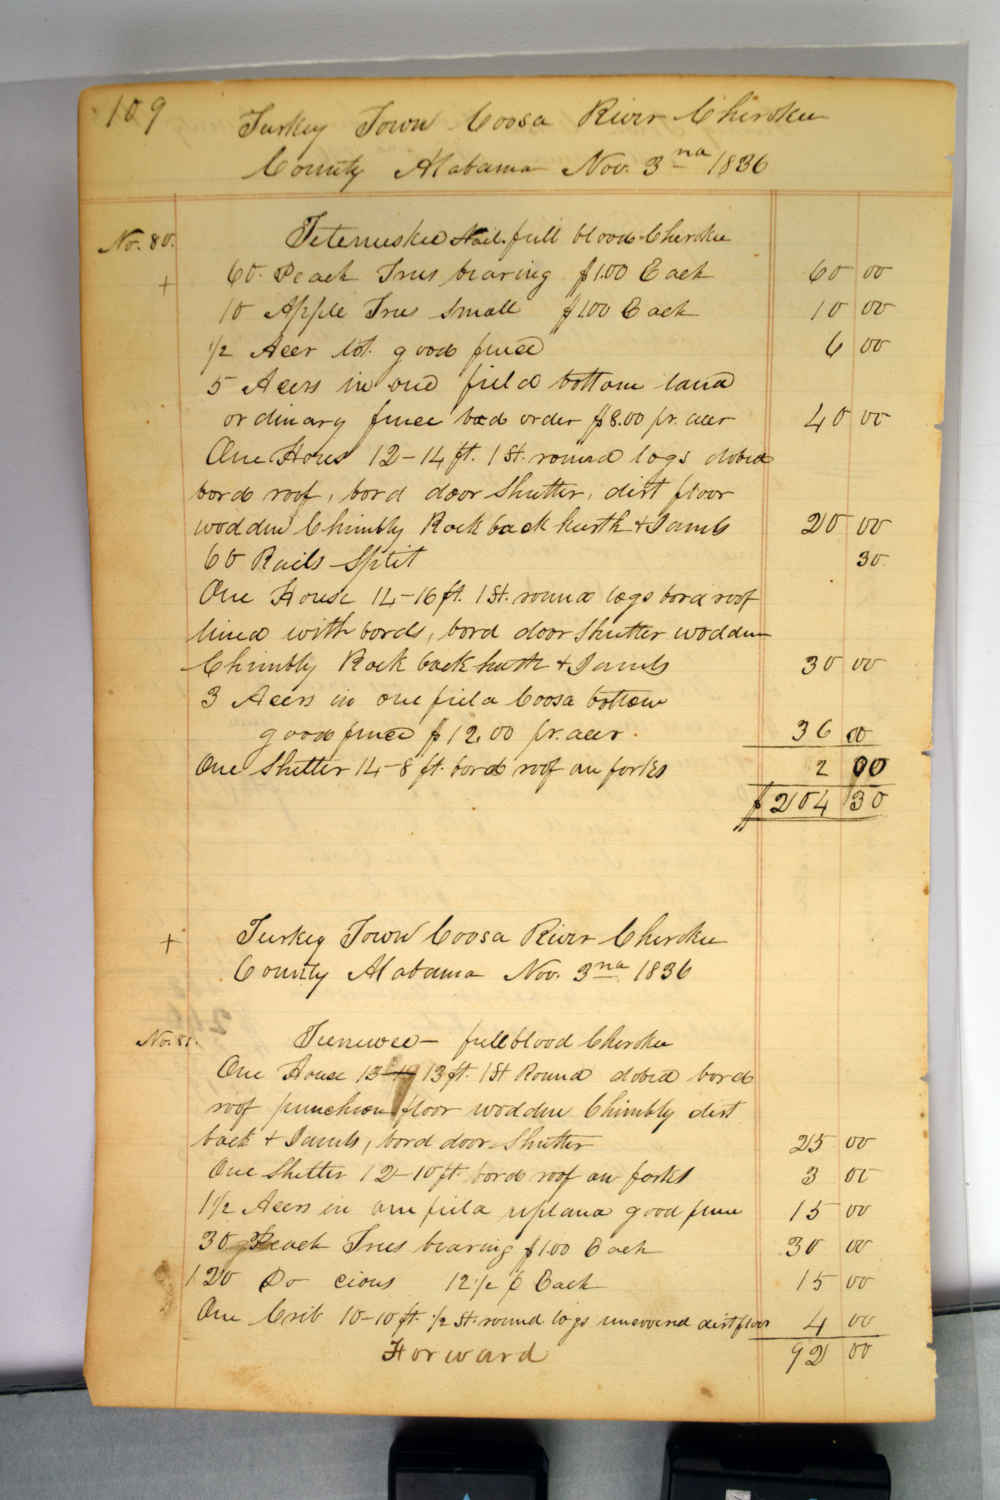 109
Turkey Town Coosa River Cherokee
County Alabama Nov. 3rd 1836
No. 80. full blood Cherokee
+ 60. Peach Trees bearing $1.00 Each 60 00
10 Apple Trees small $1.00 Each 10 00
1/2 Acer lot. good fence 6 00
5 Acers in one field bottom land
ordinary fence bad order $8.00 pr. acer 40 00
One House 12-14 ft. 1 St. round logs dobed
bord roof, bord door Shutter, dirt floor
wodden Chimbly Rock back harth & Jambs 20 00
60 Rails Split 30
One House 14-16 ft. 1 St. round logs bord roof
lined with bords, bord door Shutter wodden
Chimbly Rock back harth & Jambs 30 00
3 Acers in one field Coosa bottom
good fence $12.00 pr. acer. 36 00
One Shelter 14-8 ft. bord roof on forks 2 00
$204 30
+ Turkey Town Coosa River Cherokee
County Alabama Nov. 3rd 1836
No. 81. full blood Cherokee
One House 13 13 ft. 1 St Round dobed bord
roof puncheon floor wodden Chimbly dirt
back & Jambs, bord door Shutter 25 00
One Shelter 12-10 ft. bord roof on forks 3 00
1 1/2 Acers in one field upland good fence 15 00
30 Peach Trees bearing $1.00 Each 30 00
120 Do cions 12 1/2 ¢ Each 15 00
One Crib 10-10 ft. 1/2 St. round logs uncovered dirt floor 4 00
Forward 92 00